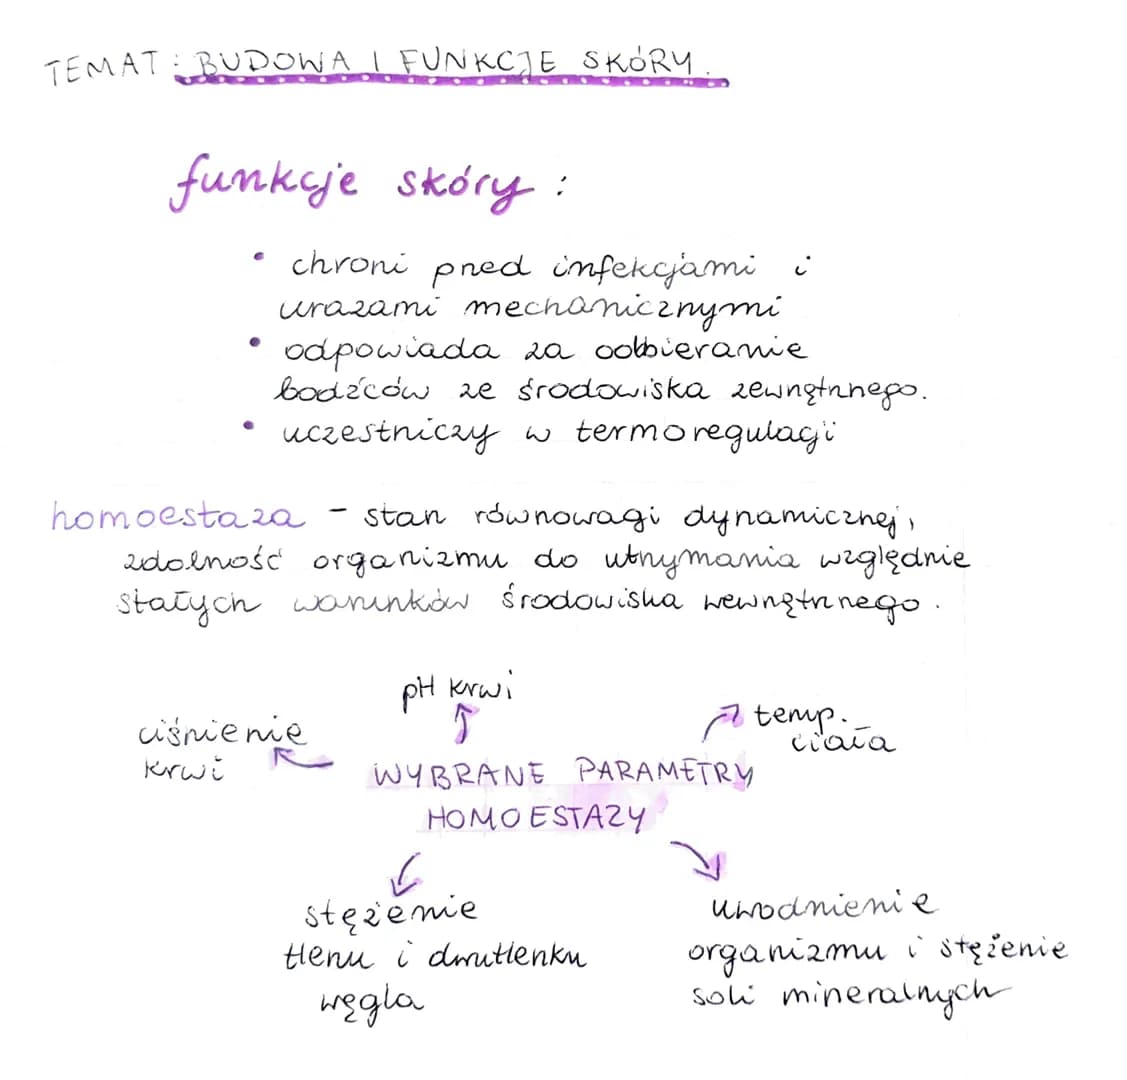 TEMAT: BUDOWA I FUNKCJE SKÓRY.
funkcje skóry:
• chroni przed infekcjami i
urazami mechanicznymi
• odpowiada za odbieranie
bodźców ze środowiska zewnętrznego.
• uczestniczy w termoregulacji
homoestaza - stan równowagi dynamicznej,
zdolność organizmu do utrzymania względnie
stałych warunków środowiska wewnętrznego.
pH krwi
ciśnienie
krwi
temp.
ciała
WYBRANE PARAMETRY
HOMOESTAZY
stężenie
tlenu i dwutlenku
węgla
uwodnienie
organizmu i stężenie
soli mineralnych